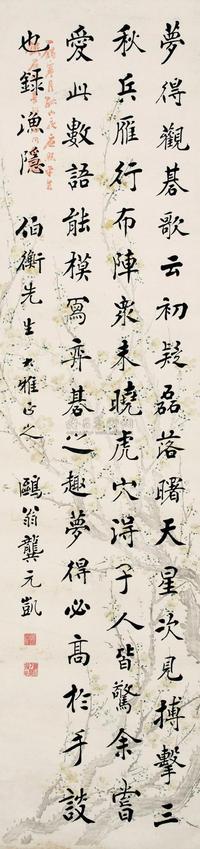 夢得觀碁歌云初疑磊落曙天星次見搏擊三
秋兵雁行布陣衆未曉虎穴得子人皆驚余嘗
愛此數語能模寫弈碁之趣夢得必高於手談
也録漁隱
伯衡先生大雅正之
鷗翁龔元凱